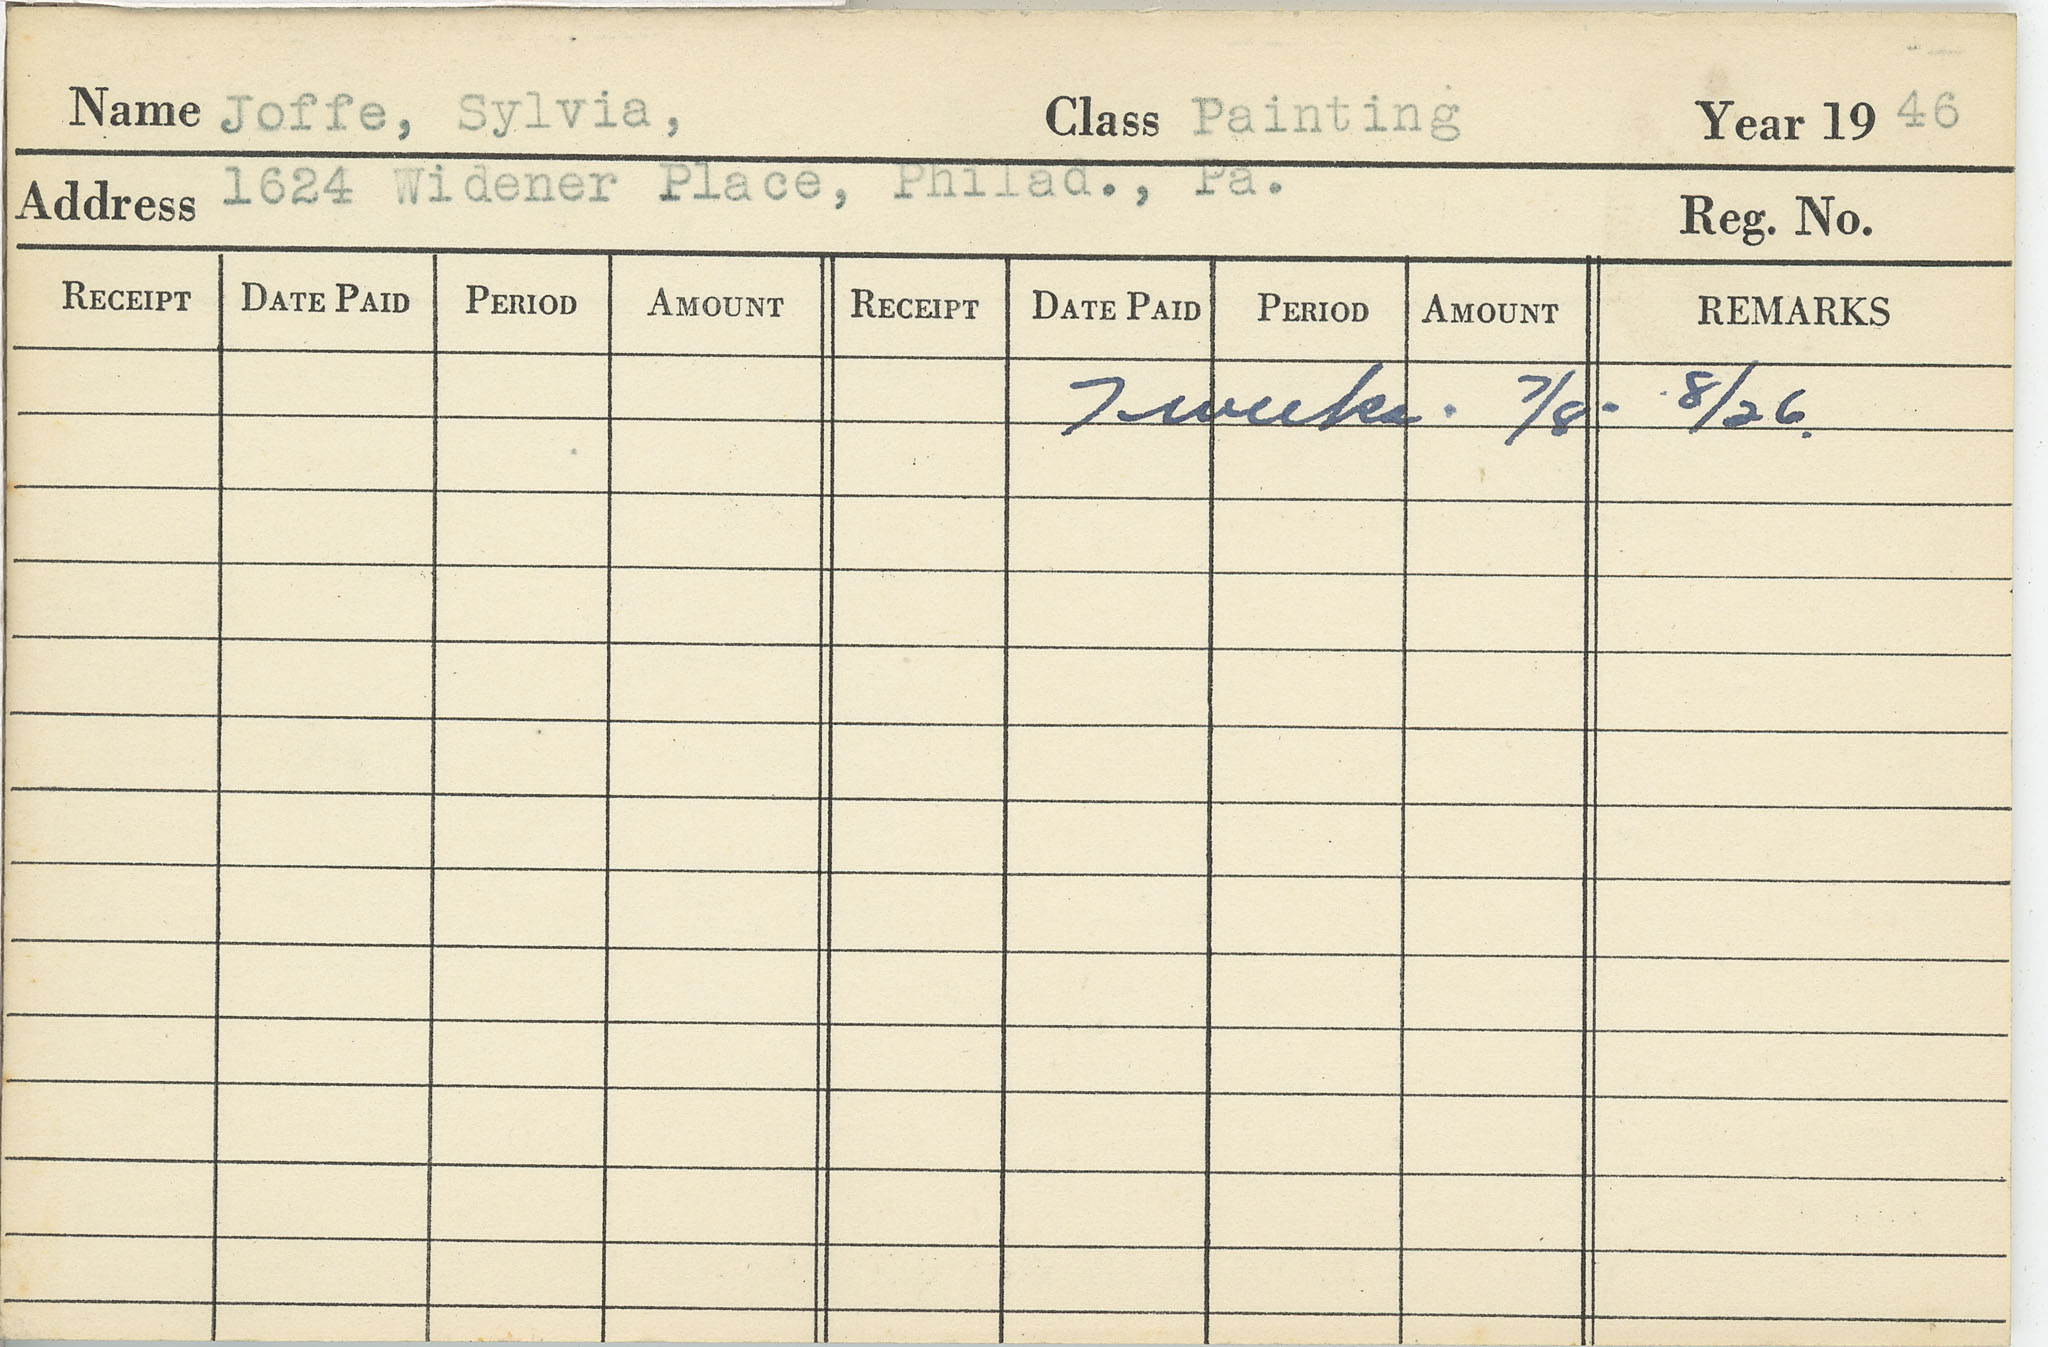 Name Joffe, Sylvia, Class Painting Year 19 46
Address 1624 Widener Place, Philad., Pa. Reg. No.
RECEIPT DATE PAID PERIOD AMOUNT RECEIPT DATE PAID PERIOD AMOUNT REMARKS
7 weeks. 7/8 - 8/26.